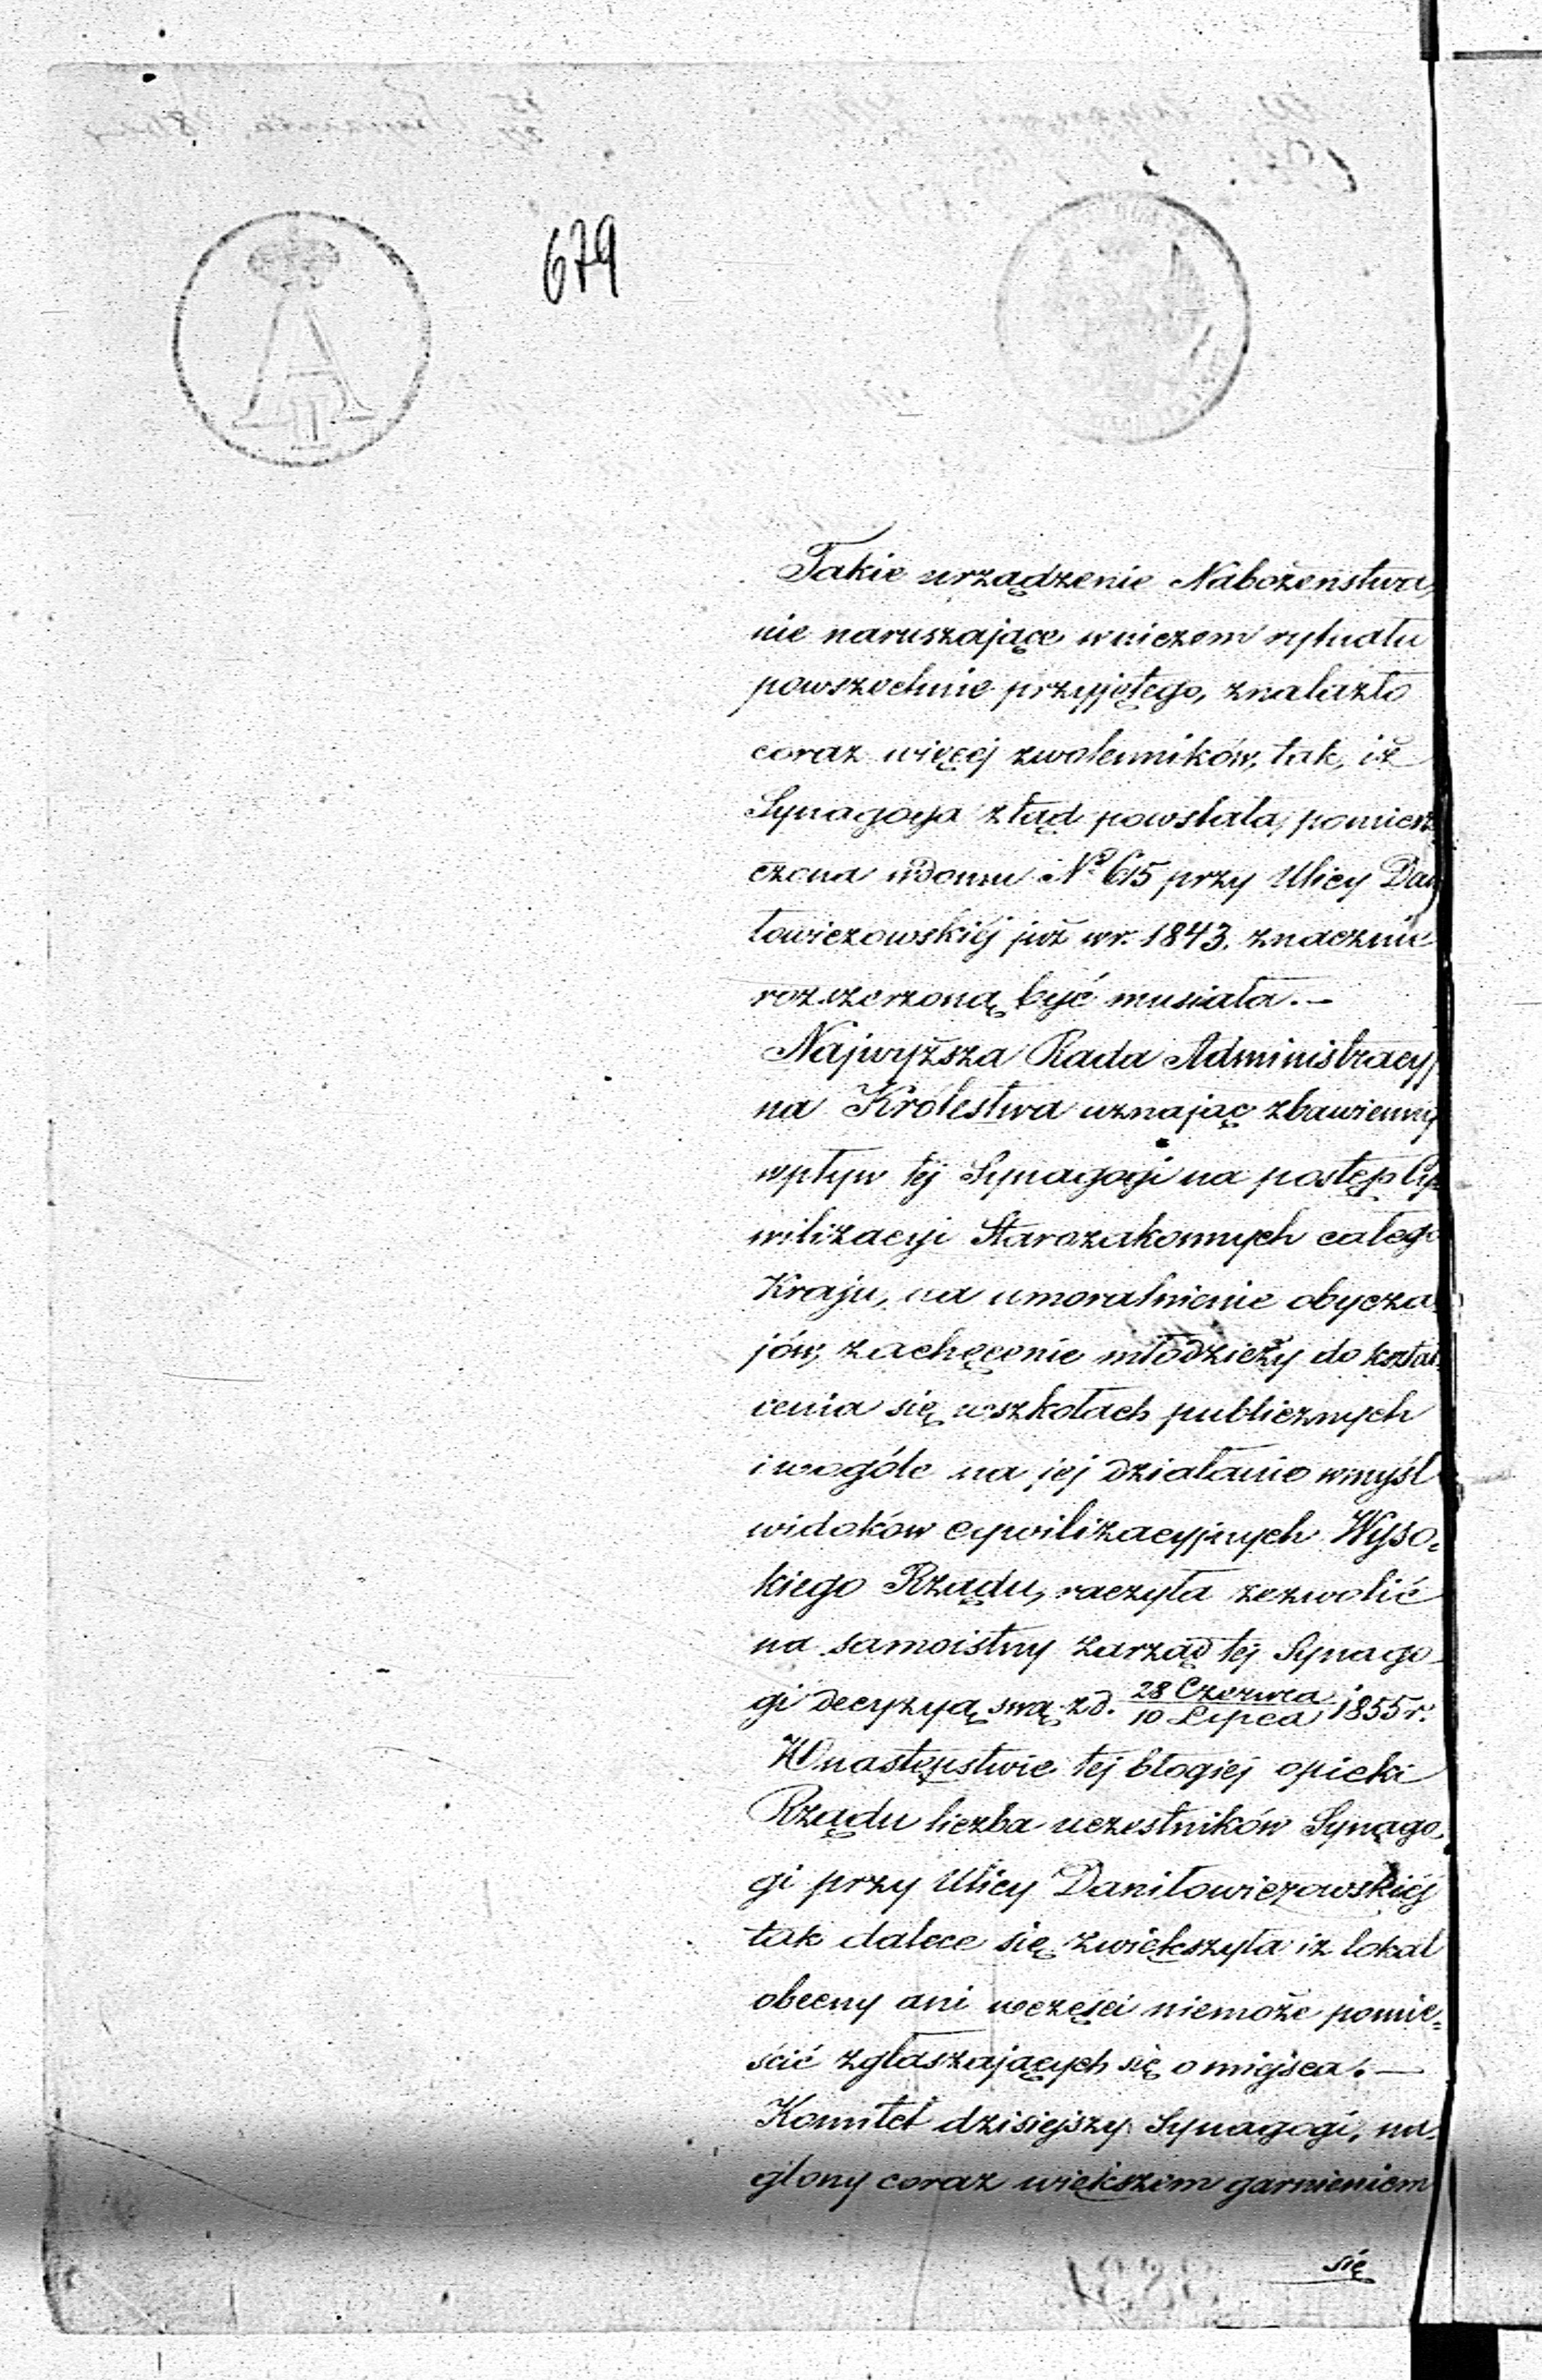 679
Takie urządzenie Nabożeństwa,
nie naruszające wniczem rytuału
powszechnie przyjętego, znalazło
coraz więcej zwolenników, tak, iż
Synagoga ztąd powstała, pomiesz
czona wdomu Nº 615 przy Ulicy Dan
łowiczowskiéj już wr. 1843. znacznie
rozszerzoną być musiała.—
Najwyższa Rada Administracyj
na Królestwa uznając zbawienny
wpływ téj Synagogi na postęp Cy
wilizacyi Starozakonnych całego
Kraju, na umoralnienie obycza
jów, zachęcenie młodzieży do kształ
cenia się wszkołach publicznych
i wogóle na jej działanie wmyśl
widoków cywilizacyjnych Wyso=
kiego Rządu, raczyła zezwolić
na samoistny Zarząd téj Synago
gi decyzyą swą zd. 28 Czerwca/10 Lipca 1855 r.
W następstwie téj błogiej opieki
Rządu liczba uczestników Synago,
gi przy Ulicy Daniłowiczowskiéj
tak dalece się zwiększyła iż lokal
obecny ani wczęści niemoże pomie=
ścić zgłaszających się o miejsca.—
Komitet dzisiejszy Synagogi, na=
glony coraz większem garnieniem
się